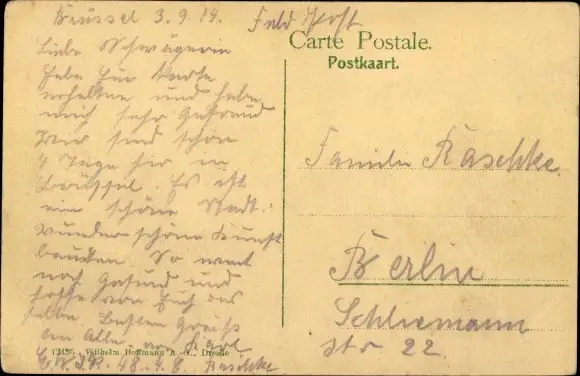 Brüssel 3.9.14. Feld Post
Carte Postale.
Postkaart.
Liebe Schwägerin
Habe Eür Karte
erhalten und habe
mich sehr Gefreud
Wir sind schon
4 Tage hir in
Brüssel. Es ist
ein schöne Stadt.
wunderschöne Kunst
bauten. So weit
noch Gesund und
hoffe von Euch das
selbe. Besten Grüß
an Alle. Karl
Raschke
Familie Raschke
Berlin
Schliemann
str 22.
13496 Wilhelm Hoffmann A.-G., Dresde